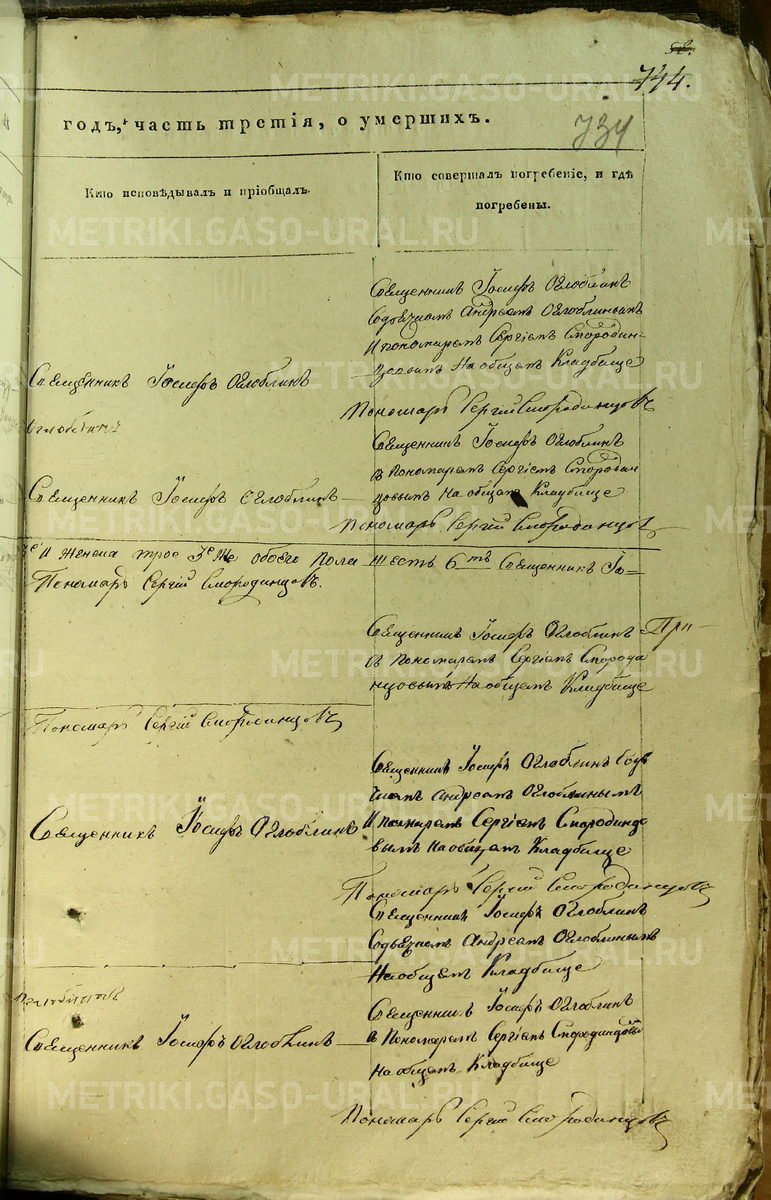 744.
734
годъ, часть третія, о умершихъ.
Кто исповѣдывалъ и пріобщалъ.
Кто совершалъ погребеніе, и гдѣ
погребены.
Священникъ Іосифъ Оглоблинъ
Содьячкомъ Андреемъ Оглоблинымъ
И пономаремъ Сергіемъ Смородин-
цовымъ На общемъ Кладбище
Священникъ Іосифъ Оглоблинъ
Пономарь Сергій Смородинцовъ
Оглоблинъ
Священникъ Іосифъ Оглоблинъ
съ Пономаремъ Сергіемъ Смородин
цовымъ На общемъ Кладбище
Священникъ Іосифъ Оглоблинъ
Пономарь Сергій Смородинцовъ
И Женска трое 3е Же обоего Пола шесть 6ть Священникъ Іо-
Пономарь Сергій Смородинцовъ.
Священникъ Іосифъ Оглоблинъ При-
съ Пономаремъ Сергіемъ Смороди
нцовымъ На общемъ Кладбище
Пономарь Сергій Смородинцовъ
Священникъ Іосифъ Оглоблинъ Содь
чкомъ Андреемъ Оглоблинымъ
И пономаремъ Сергіемъ Смородинцо
вымъ На общемъ Кладбище
Священникъ Іосифъ Оглоблинъ
Пономарь Сергій Смородинцовъ
Священникъ Іосифъ Оглоблинъ
Содьячкомъ Андреемъ Оглоблинымъ
На общемъ Кладбище
Священникъ Іосифъ Оглоблинъ
съ Пономаремъ Сергіемъ Смородинцовы
На общемъ Кладбище
Священникъ Іосифъ Оглоблинъ
Пономарь Сергій Смородинцовъ
METRIKI.GASO-URAL.RU